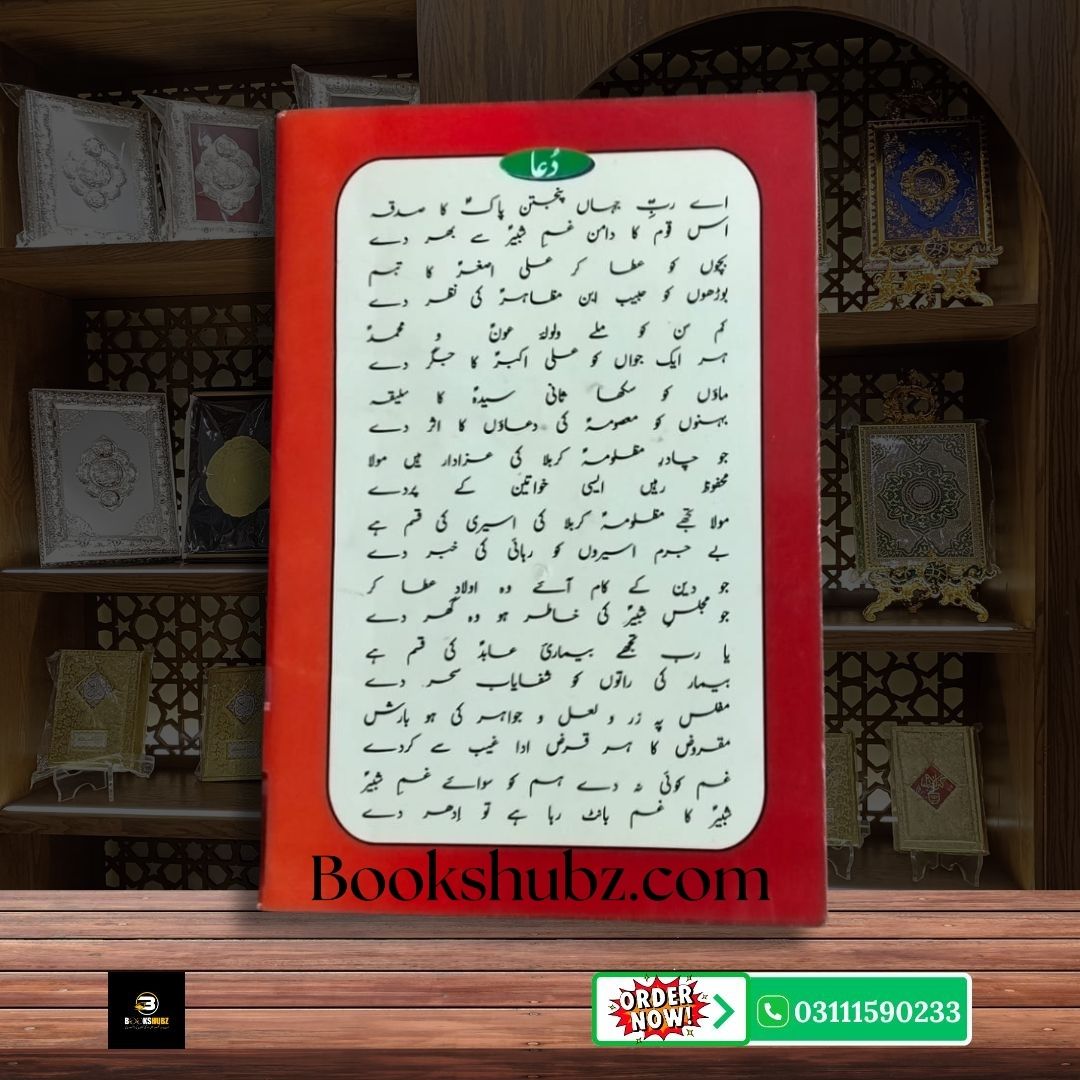 دُعا
اے ربِّ جہاں پنجتن پاکؑ کا صدقہ
اس قوم کا دامن غمِ شبیرؑ سے بھر دے
بچوں کو عطا کر علی اصغرؑ کا تبسم
بوڑھوں کو حبیب ابن مظاہرؑ کی نظر دے
کم سن کو ملے ولولۂ عونؑ و محمدؑ
ہر ایک جواں کو علی اکبرؑ کا جگر دے
ماؤں کو سکھا ثانی سیدہؑ کا سلیقہ
بہنوں کو معصومہؑ کی دعاؤں کا اثر دے
جو چادرِ مظلومہؑ کربلا کی عزادار ہیں مولا
محفوظ رہیں ایسی خواتین کے پردے
مولا تجھے مظلومہؑ کربلا کی اسیری کی قسم ہے
بے جرم اسیروں کو رہائی کی خبر دے
جو دین کے کام آئے وہ اولاد عطا کر
جو مجلسِ شبیرؑ کی خاطر ہو وہ گھر دے
یا رب تجھے بیماریٔ عابدؑ کی قسم ہے
بیمار کی راتوں کو شفایاب سحر دے
مفلس پہ زر و لعل و جواہر کی ہو بارش
مقروض کا ہر قرض ادا غیب سے کردے
غم کوئی نہ دے ہم کو سوائے غمِ شبیرؑ
شبیرؑ کا غم بانٹ رہا ہے تو اِدھر دے
Bookshubz.com
BOOKSHUBZ
ORDER NOW!
03111590233